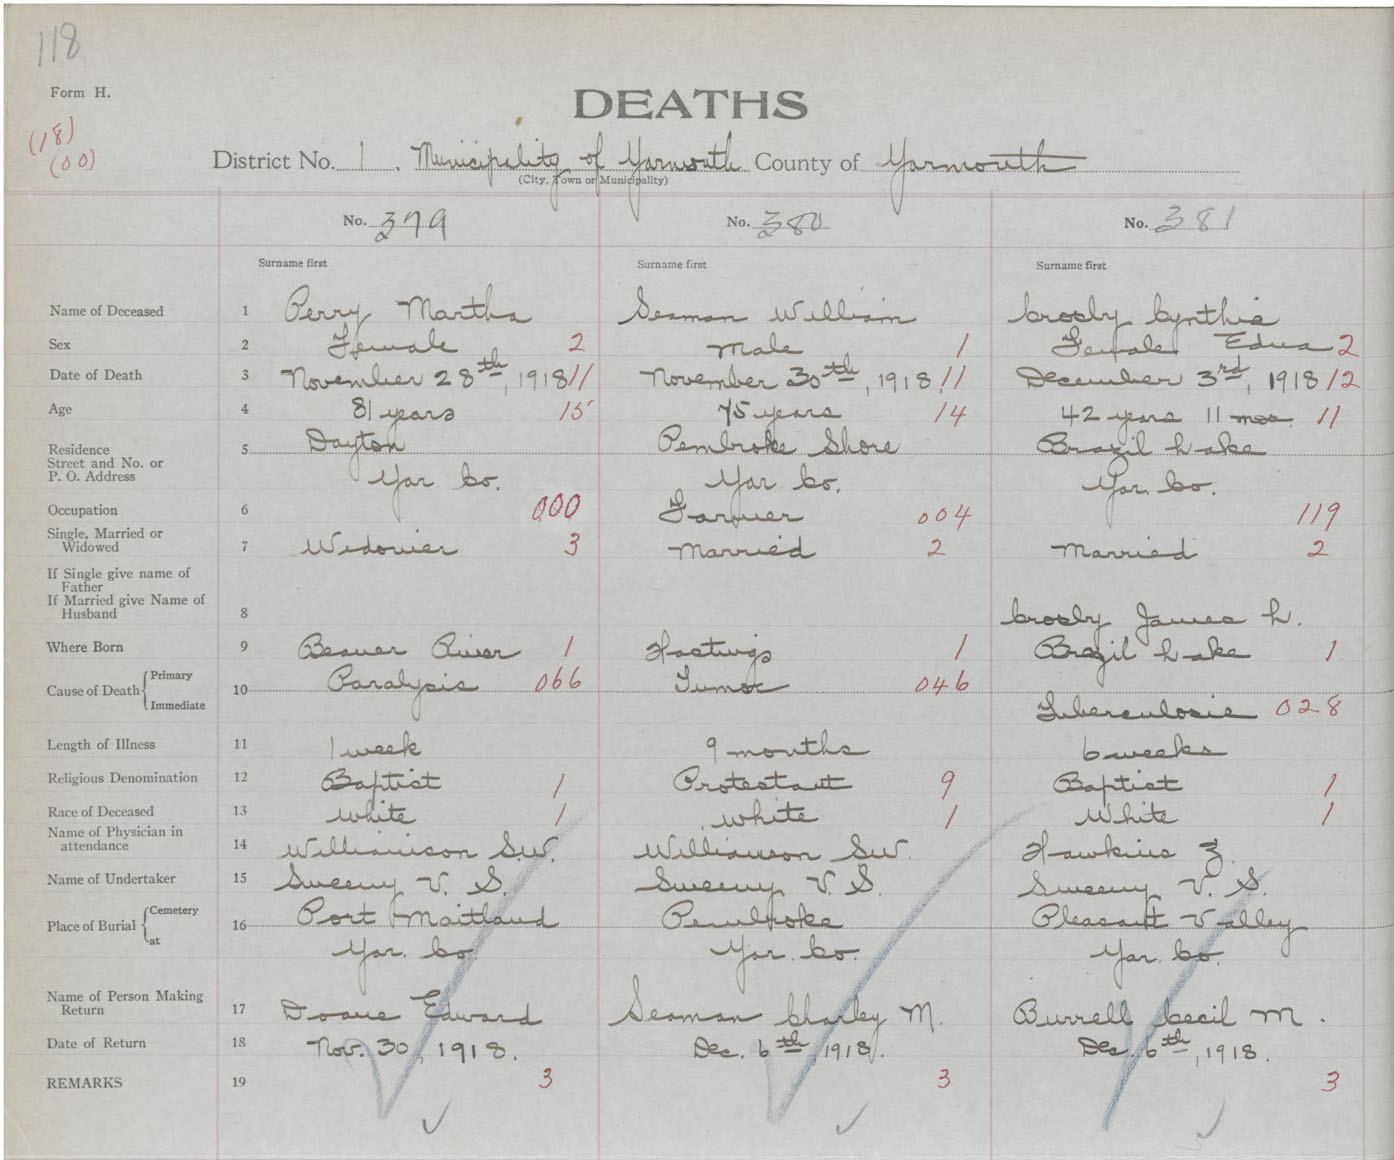 118
Form H.
DEATHS
(18)
(00)
District No. 1. Municipality of Yarmouth County of Yarmouth
(City, Town or Municipality)
No. 379 No. 380 No. 381
Surname first Surname first Surname first
Name of Deceased 1 Perry Martha Seaman William Crosby Cynthia
Sex 2 Female 2 Male 1 Female Edna 2
Date of Death 3 November 28th, 1918 11 November 30th, 1918 11 December 3rd, 1918 12
Age 4 81 years 15 75 years 14 42 years 11 mos. 11
Residence 5 Dayton Pembroke Shore Brazil Lake
Street and No. or
P. O. Address Yar. Co. Yar. Co. Yar. Co.
Occupation 6 000 Farmer 004 119
Single, Married or
Widowed 7 Widower 3 Married 2 Married 2
If Single give name of
Father
If Married give Name of
Husband 8 Crosby James L.
Where Born 9 Beaver River 1 Hastings 1 Brazil Lake 1
Cause of Death { Primary 10 Paralysis 066 Tumor 046
Immediate Tuberculosis 028
Length of Illness 11 1 week 9 months 6 weeks
Religious Denomination 12 Baptist 1 Protestant 9 Baptist 1
Race of Deceased 13 white 1 white 1 White 1
Name of Physician in
attendance 14 Williamson S.W. Williamson S.W. Hawkins Z.
Name of Undertaker 15 Sweeny V. S. Sweeny V. S. Sweeny V. S.
Place of Burial { Cemetery 16 Port Maitland Pembroke Pleasant Valley
at Yar. Co. Yar. Co. Yar. Co.
Name of Person Making
Return 17 Doane Edward Seaman Charley M. Burrell Cecil M.
Date of Return 18 Nov. 30, 1918. Dec. 6th, 1918. Dec. 6th, 1918.
REMARKS 19 3 3 3